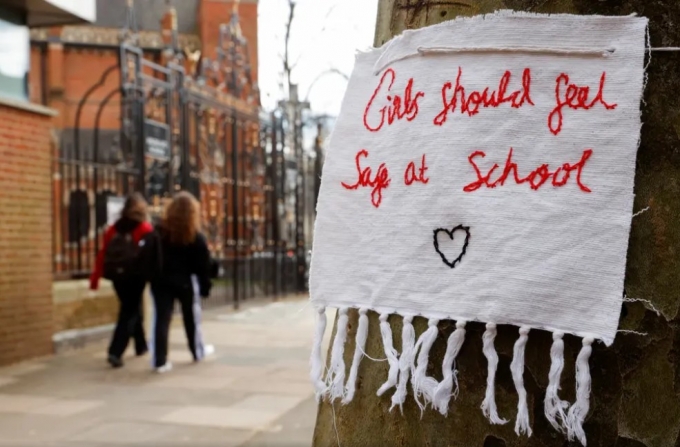 Girls should feel
safe at School